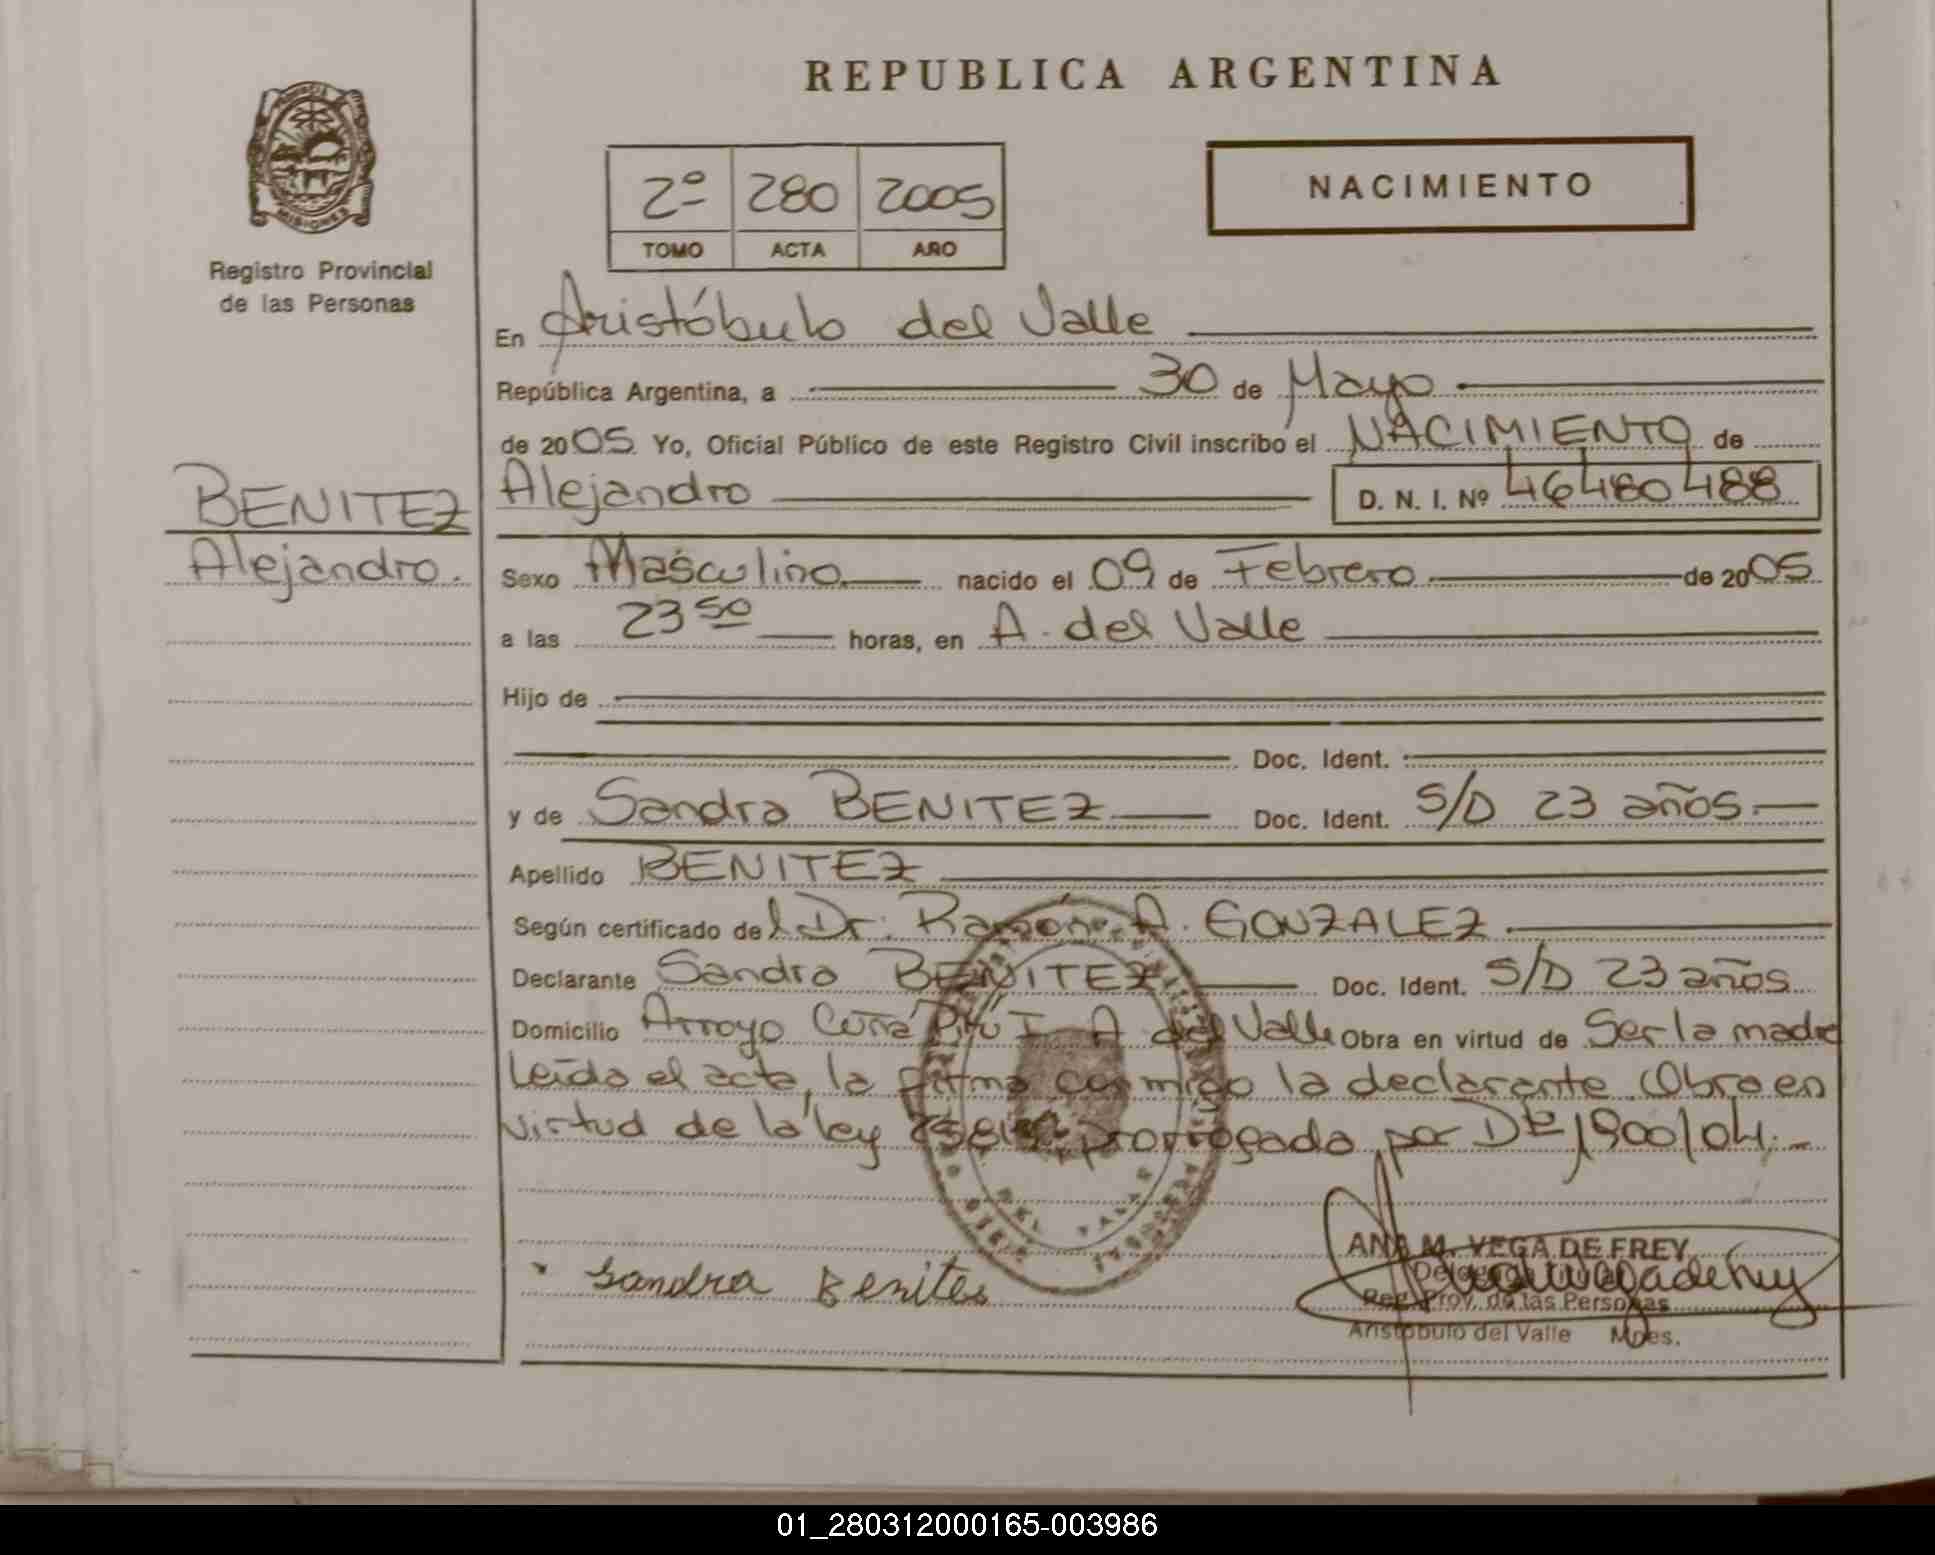 REPUBLICA ARGENTINA
PROVINCIA DE
MISIONES
Registro Provincial
de las Personas
2º 280 2005
TOMO ACTA AÑO
NACIMIENTO
En Aristóbulo del Valle
República Argentina, a 30 de Mayo
de 2005 Yo, Oficial Público de este Registro Civil inscribo el NACIMIENTO de
BENITEZ
Alejandro.
Alejandro D. N. I. Nº 46480488
Sexo Masculino nacido el 09 de Febrero de 2005
a las 23 50 horas, en A. del Valle
Hijo de
Doc. Ident.
y de Sandra BENITEZ Doc. Ident. S/D 23 años.
Apellido BENITEZ
Según certificado del Dr. Ramón A. GONZALEZ
Declarante Sandra BENITEZ Doc. Ident. S/D 23 años
Domicilio Arroyo Cuña Pirú I A. del Valle Obra en virtud de Ser la madre
Leída el acta, la firma conmigo la declarante. Obra en
virtud de la ley prorrogada por Dto 1900/04.-
DEL VALLE
Sandra Benites
ANA M. VEGA DE FREY
Reg. Prov. de las Personas
Aristóbulo del Valle Mnes.
01_280312000165-003986